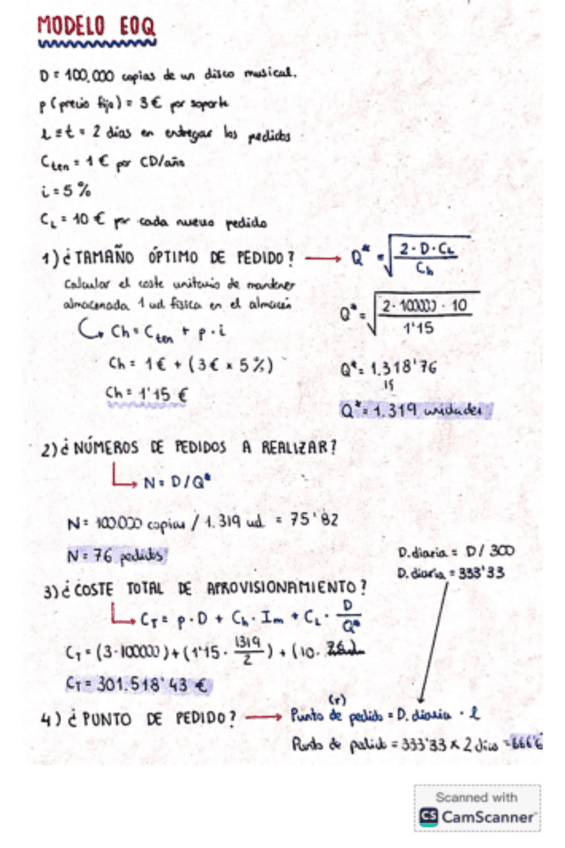 MODELO EOQ
D = 100.000 copias de un disco musical.
p (precio fijo) = 3€ por soporte
l = t = 2 días en entregar los pedidos
Cten = 1 € por CD/año
i = 5 %
CL = 10 € por cada nuevo pedido
1) ¿TAMAÑO ÓPTIMO DE PEDIDO? → Q* = √(2·D·CL / Ch)
Calcular el coste unitario de mantener
almacenada 1 ud física en el almacén
Q* = √(2·100000·10 / 1'15)
Ch = Cten + p·i
Ch = 1€ + (3€ x 5%)
Ch = 1'15 €
Q* = 1.318'76
Q* = 1.319 unidades
2) ¿NÚMEROS DE PEDIDOS A REALIZAR?
N = D/Q*
N = 100000 copias / 1.319 ud = 75'82
N = 76 pedidos
D.diaria = D/300
D.diaria = 333'33
3) ¿COSTE TOTAL DE APROVISIONAMIENTO?
CT = p·D + Ch·Im + CL · D/Q*
CT = (3·100000) + (1'15 · 1319/2) + (10·
CT = 301.518'43 €
4) ¿PUNTO DE PEDIDO? → (r) Punto de pedido = D.diaria · l
Punto de pedido = 333'33 x 2 días = 666'6
Scanned with
CS CamScanner